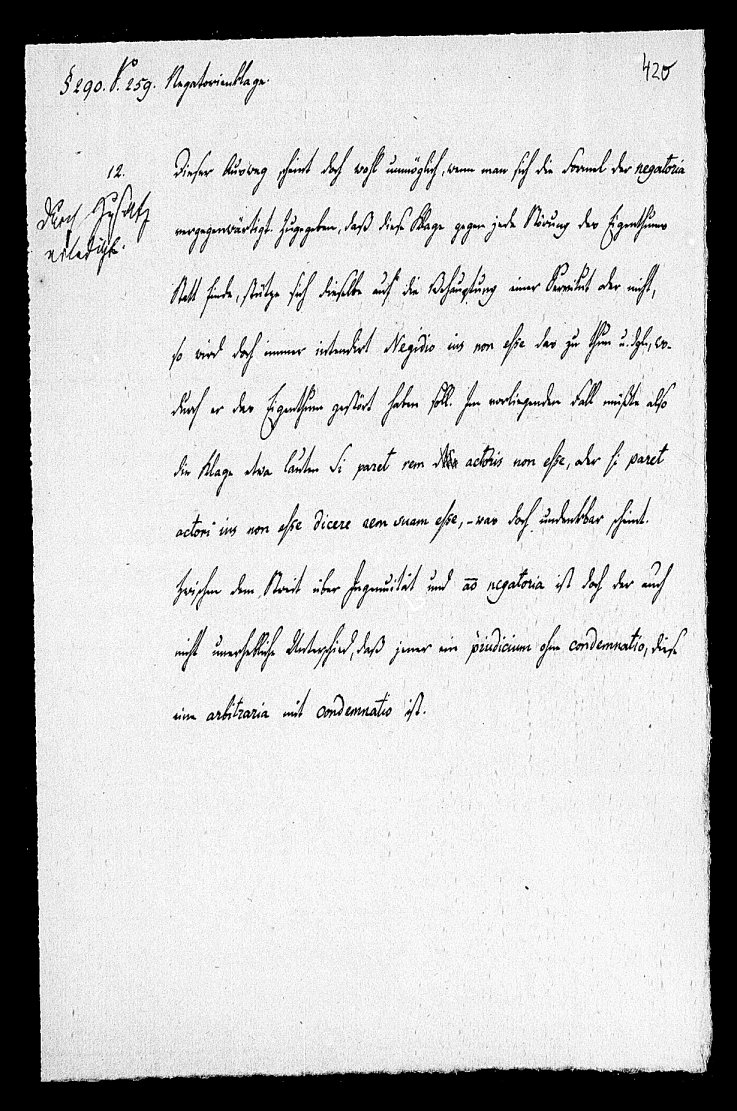 420
§ 290. S. 259. Negatorienklage.
12.
Durch Zusatz
erledigt.
Dieser Ausweg scheint doch wohl unmöglich, wenn man sich die Formel der negatoria
vergegenwärtigt. Zugegeben, daß diese Klage gegen jede Störung des Eigenthums
Statt finde, stütze sich dieselbe auf die Behauptung einer Servitut oder nicht,
so wird doch immer intendirt Negidio ius non esse das zu thun u. dgl., wo-
durch er das Eigenthum gestört haben soll. Im vorliegenden Fall müßte also
die Klage etwa lauten Si paret rem actoris non esse, oder si paret
actori ius non esse dicere rem suam esse, - was doch undenkbar scheint.
Zwischen dem Streit über Ingenuität und ao negatoria ist doch der auch
nicht unerhebliche Unterschied, daß jener ein priudicium ohne condemnatio, diese
eine arbitraria mit condemnatio ist.